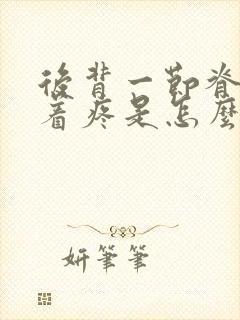 後背一節脊
着疼是怎麼
妍筆筆